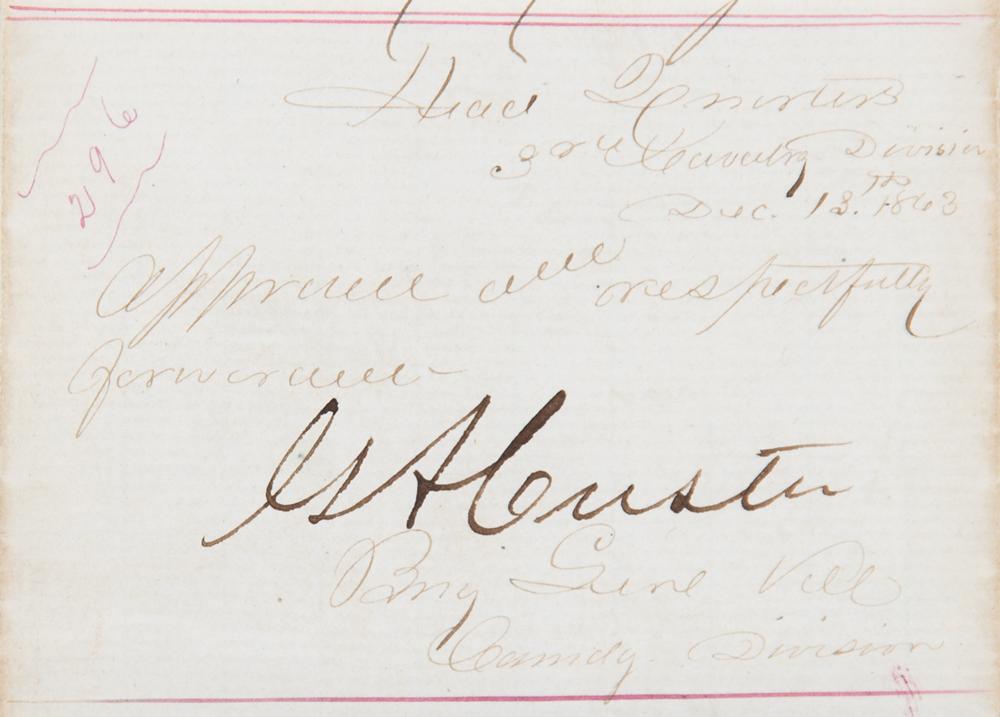 Head Quarters
3rd Cavalry Division
Dec. 13.th 1863
296
Approved and respectfully
forwarded-
GA Custer
Brig Genl Vols
Comndg. Division